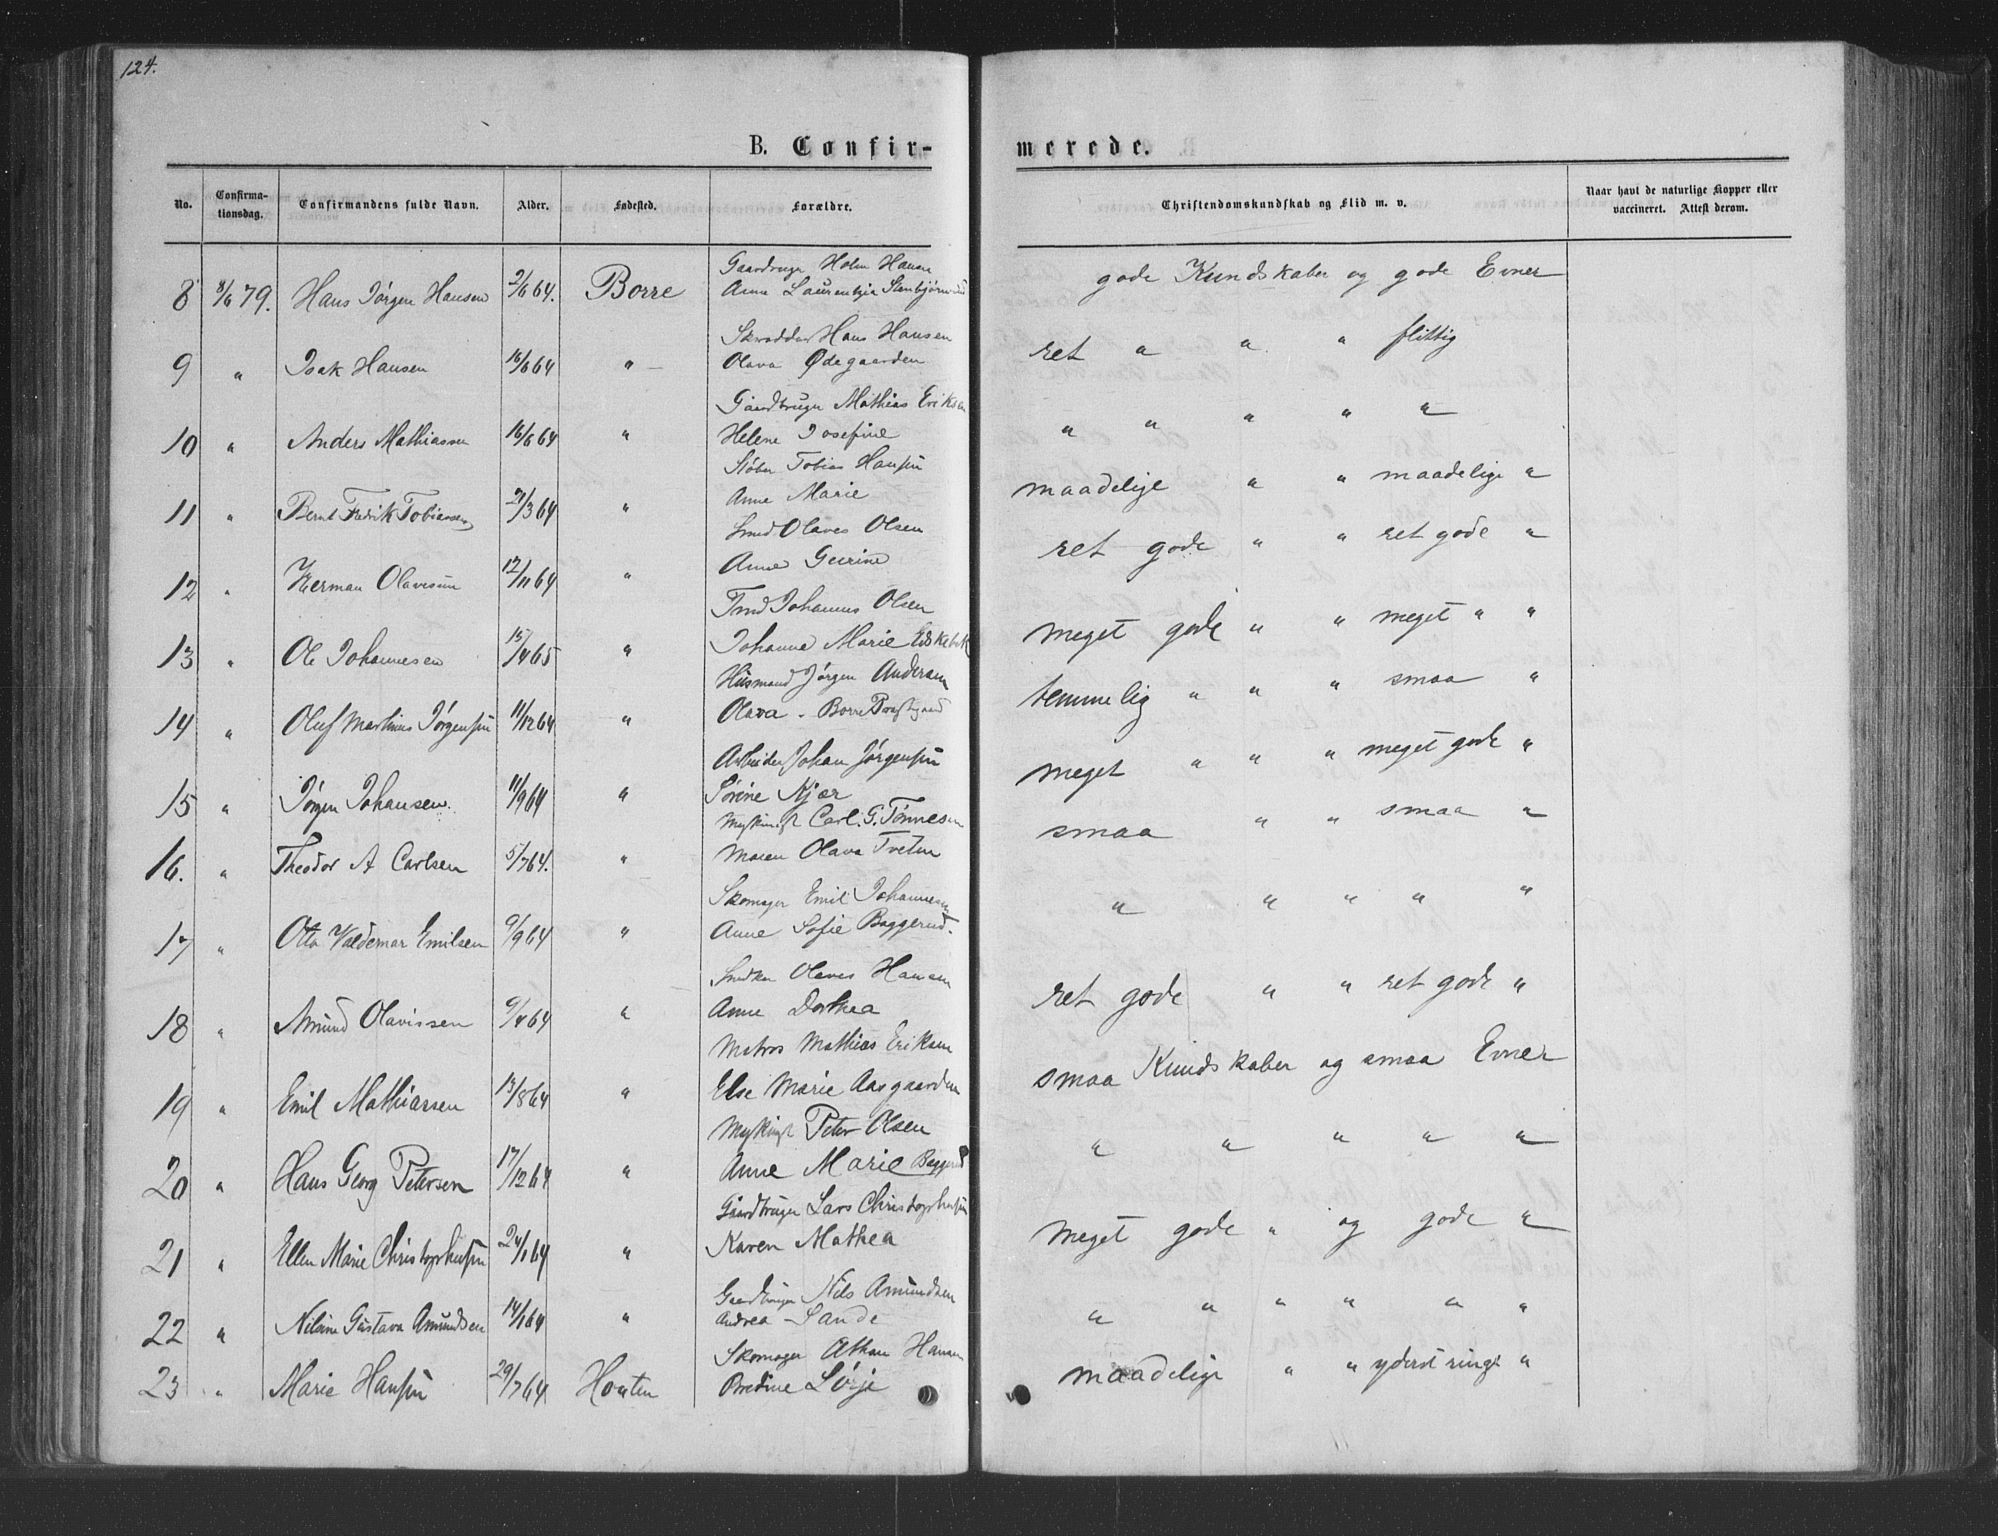 124.
B. Confir-
merede.
No.
Confirma-
tionsdag.
Confirmandens fulde Navn.
Alder.
Fødested.
Forældre.
Christendomskundskab og Flid m. v.
Naar havt de naturlige Kopper eller
vaccineret. Attest derom.
Hansen
8 8/6 79. Hans Jørgen Hansen 2/6 64. Borre Anne Laurentzia
gode Kundskaber og gode Evner
Hans Hansen
9 " Isak Hansen 16/6 64 " Olava Ødegaarden
ret " " " flittig
Gaardbruger Mathias Eriksen
10 " Anders Mathiassen 16/6 64 " Helene Josefine
" " " " "
Tobias Hansen
11 " Bernt Fredrik Tobiassen /3 64 " Anne Marie
maadelige " " maadelige "
Smed Olaves Olsen
12 " Herman Olavesen 12/11 64 " Anne
ret gode " " ret gode "
Johannes Olsen
13 " Ole Johannesen 15/4 65 " Johanna Marie
meget gode " " meget " "
Husmand Jørgen Andersen
14 " Oluf Martinus Jørgensen 11/12 64 " Olava - Borre
temmelig " " " smaa "
Arbeider Johan Jørgensen
15 " Jørgen Johansen. 11/9 64 " Sørine Kjær
meget " " " meget gode "
Carl. G. Tønnesen
16. " Theodor A Carlsen 5/7 64. " Maren Olava Tveten
smaa " " smaa "
Skomager Emil Johannesen
17 " Otto Valdemar Emilsen 9/9 64 " Anne Sofie Baggerud.
" " " " "
Olaves Hansen
18 " Amund Olavissen 9/4 64 " Anne Dorthea
ret gode " " ret gode "
Matros Mathias Eriksen
19 " Emil Mathiassen 13/8 64 " Else Marie Aasgaarden
smaa Kundskaber og smaa Evner
Peter Olsen
20 " Hans Georg Petersen 17/12 64 " Anne Marie Baggerud
" " " " "
Gaardbruger Lars Christophersen
21 " Ellen Marie Christophersen 24/1 64 " Karen Mathea
meget gode " og gode "
Gaardbruger Nils Amundsen
22 " Nilsine Gustava Amundsen 14/1 64 " Andrea Sande
" " " " " "
Skomager Hansen
23 " Marie Hansen 29/7 64 Horten Bredine
maadelige " " yderst ringe "